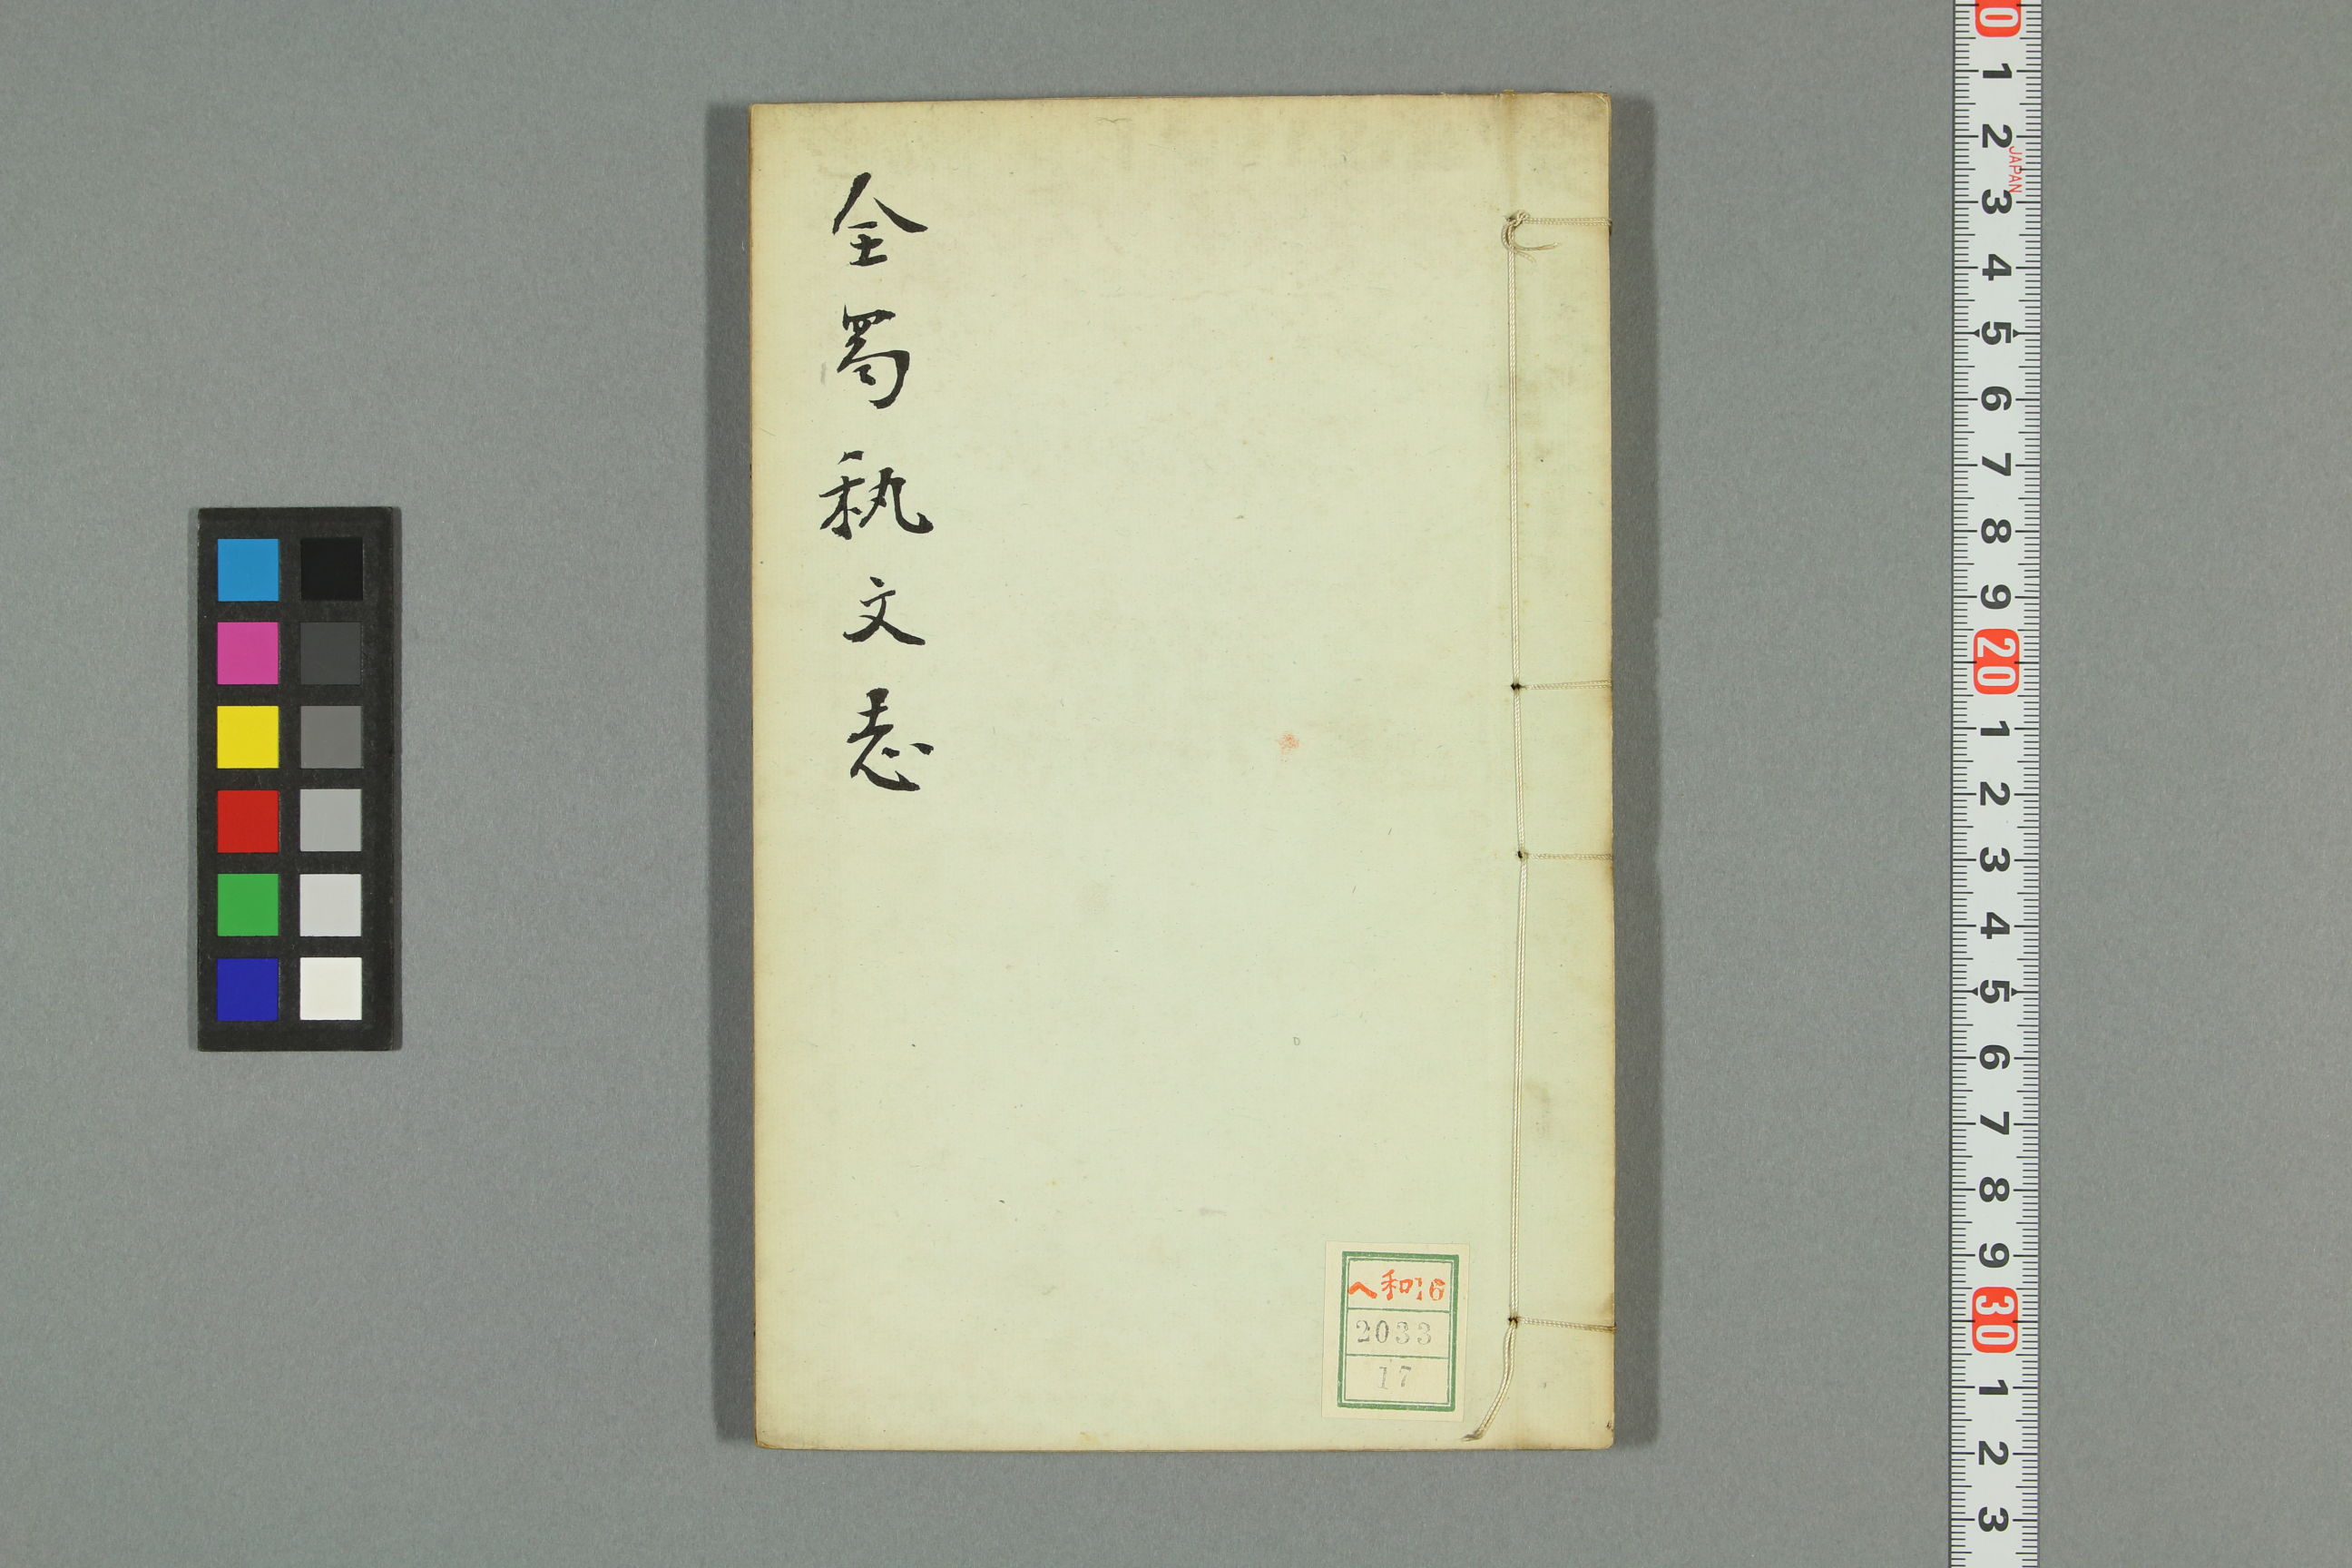 全蜀秇文志
ヘ和16
2033
17
0
1
2
JAPAN
3
4
5
6
7
8
9
20
1
2
3
4
5
6
7
8
9
30
1
2
3